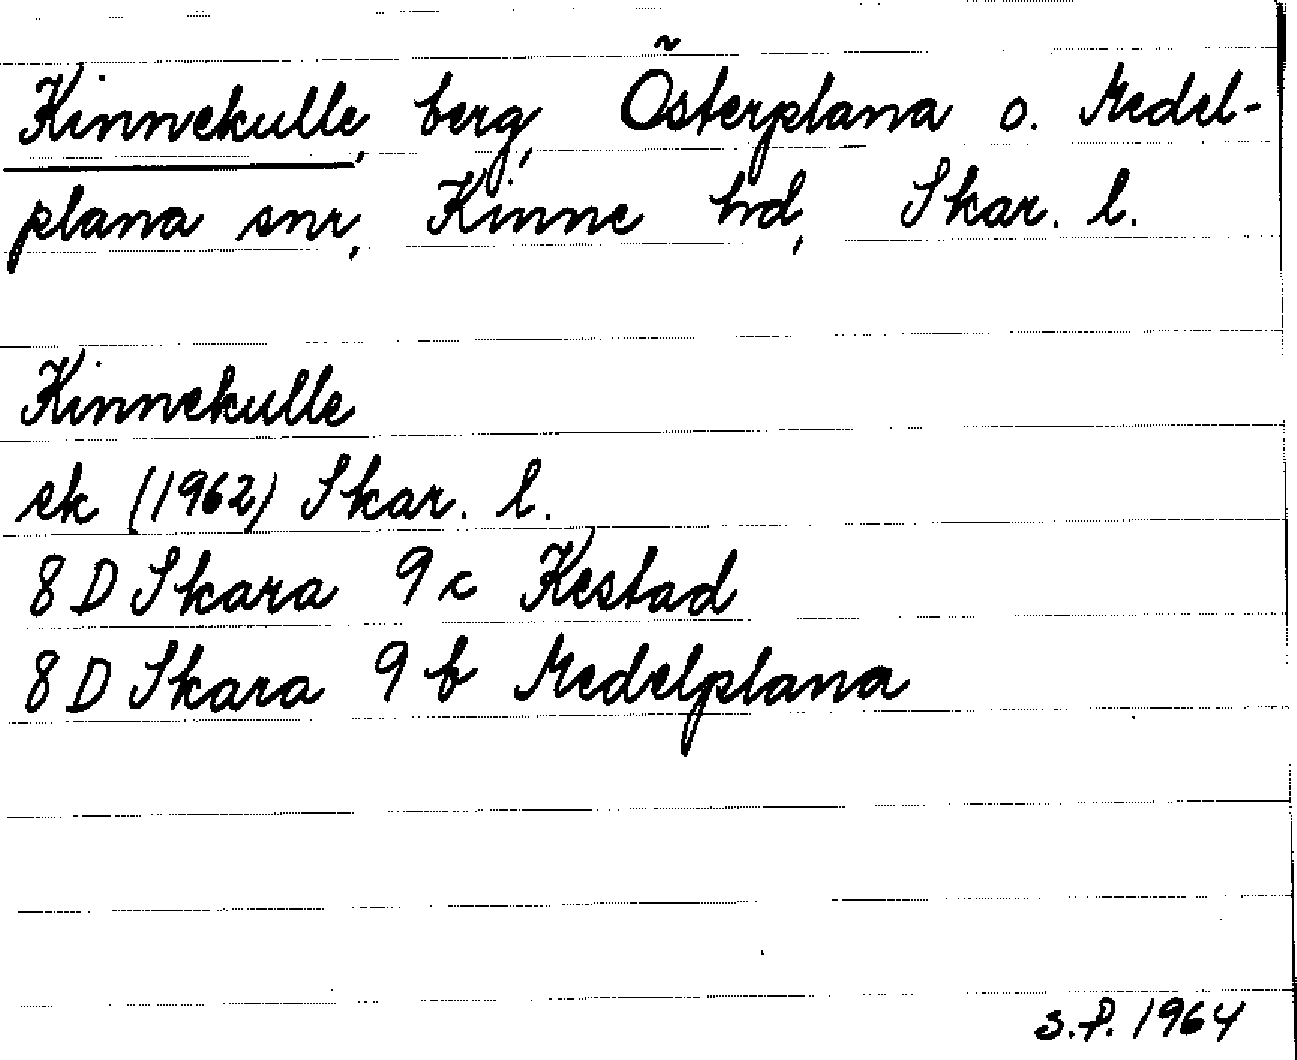 Kinnekulle, berg, Österplana o. Medel-
plana snr, Kinne hd, Skar. l.
Kinnekulle
ek (1962) Skar. l.
8 D Skara 9 c Kestad
8 D Skara 9 b Medelplana
s.f. 1964